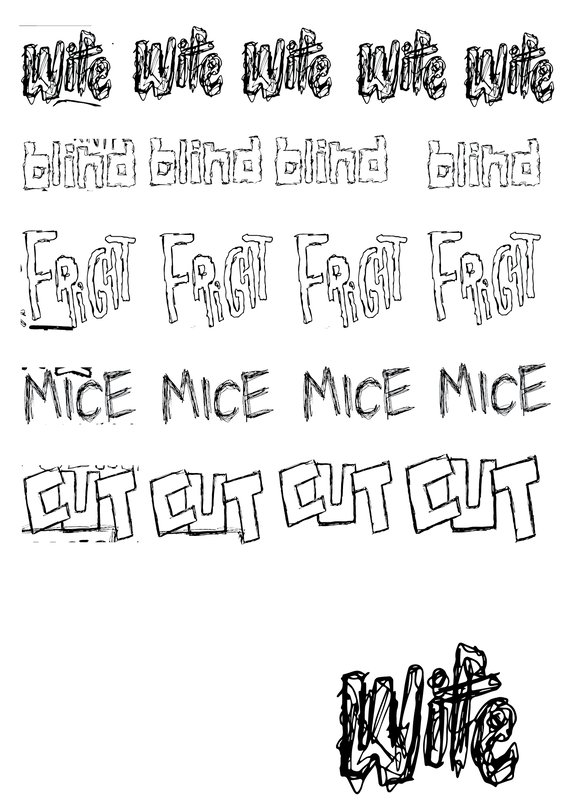 Wife Wife Wife Wife Wife
blind blind blind blind
FRIGHT FRIGHT FRIGHT FRIGHT
MICE MICE MICE MICE
CUT CUT CUT CUT
Wife